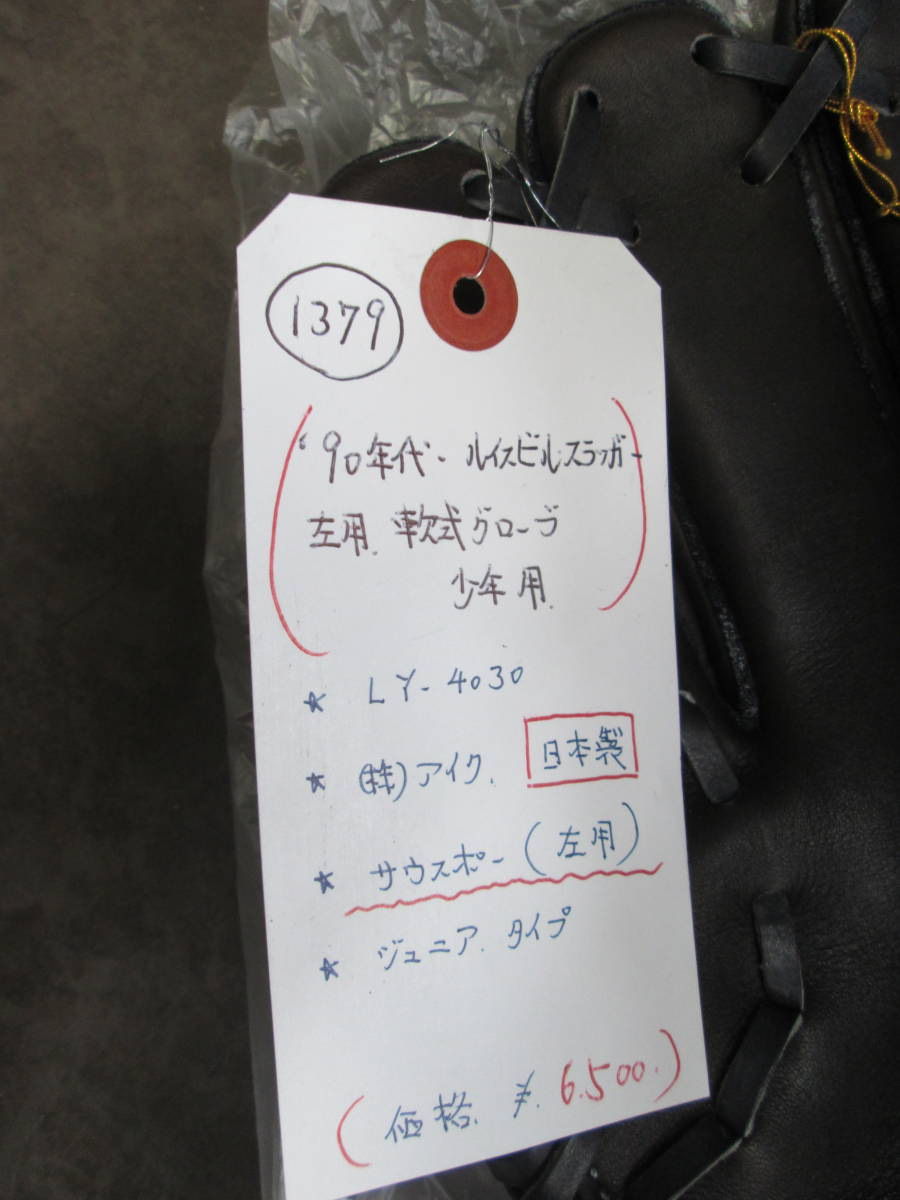 1379
'90年代- ルイスビルスラッガー
左用. 軟式グローブ
少年用.
★ LY-4030
★ (株)アイク. 日本製
★ サウスポー(左用)
★ ジュニア.タイプ
(価格. ¥. 6.500.)